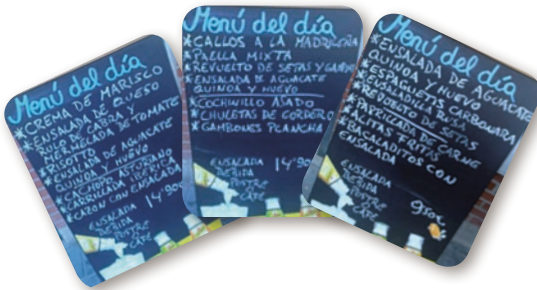 Menú del día
*CREMA DE MARISCO
*ENSALADA DE QUESO
RULO DE CABRA Y
MERMELADA DE TOMATE
*RISOTTO DE AGUACATE
*ENSALADA
QUINOA Y HUEVO
*CACHOPO ASTURIANO
*CARRILLADA IBERICA
*CAZON CON ENSALADA
ENSALADA
BEBIDA
POSTRE
CAFE
14'90€
Menú del día
*CALLOS A LA MADRILEÑA
*PAELLA MIXTA
*REVUELTO DE SETAS Y
*ENSALADA DE AGUACATE
QUINOA Y HUEVO
*COCHINILLO ASADO
*CHULETAS DE CORDERO
*GAMBONES PLANCHA
ENSALADA
BEBIDA
POSTRE
CAFE
14'90€
Menú del día
*ENSALADA DE AGUACATE
QUINOA Y HUEVO
*ESPAGUETIS CARBONARA
*ENSALADILLA RUSA
*REVUELTO DE SETAS
*PARRILLADA DE CARNE
*ALITAS FRITAS
*BACALADITOS CON
ENSALADA
ENSALADA
BEBIDA
POSTRE
CAFE